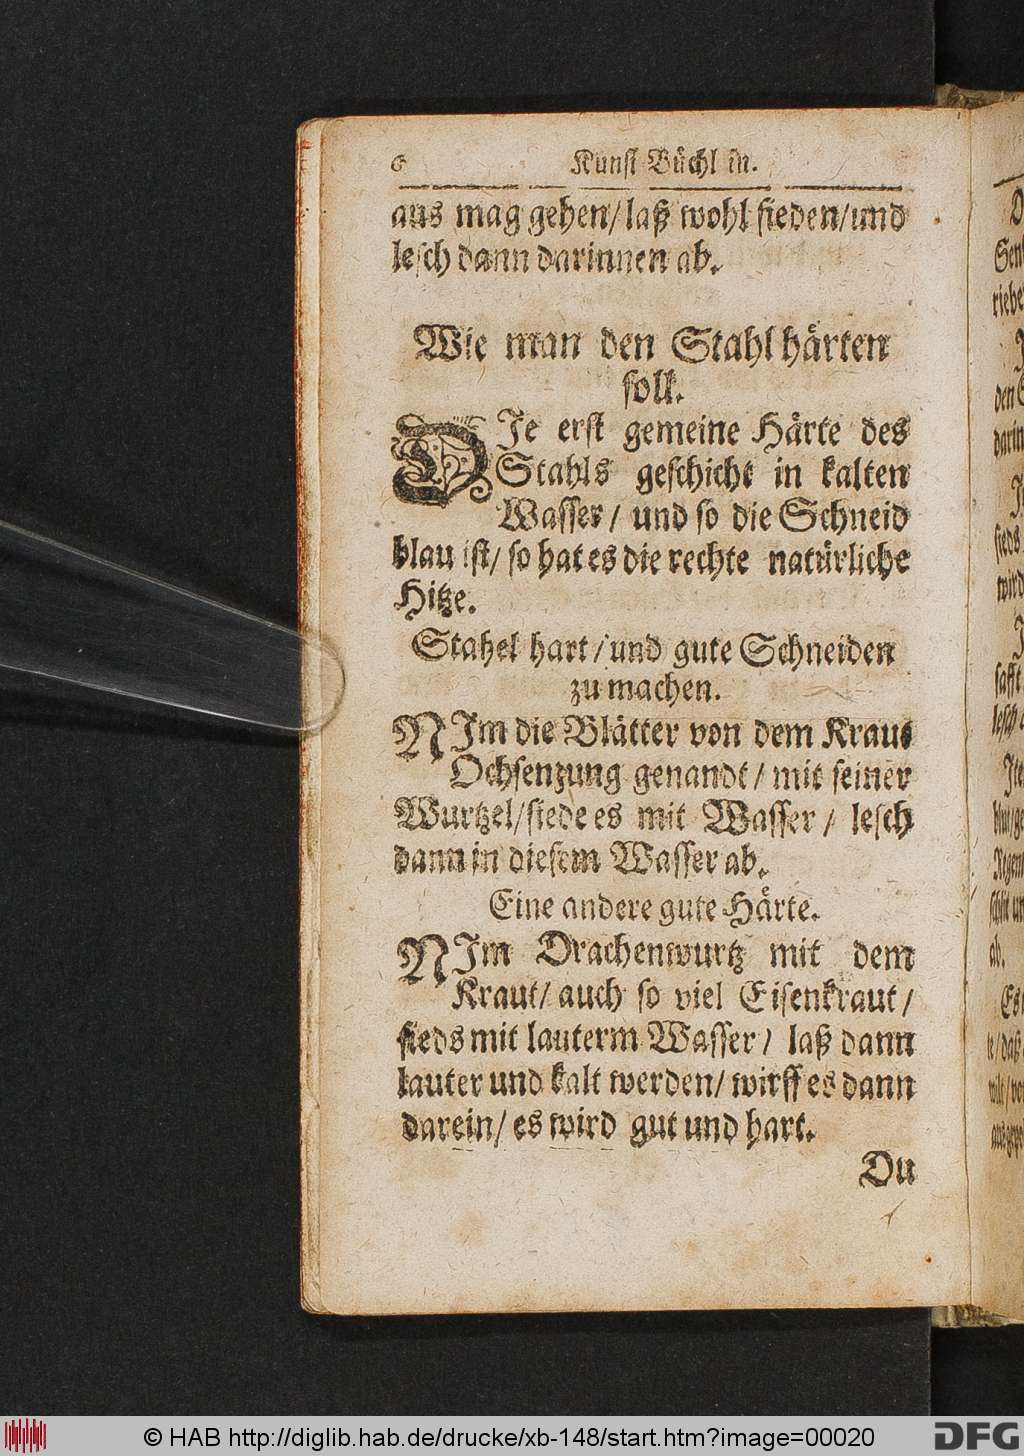 6 Kunst Büchlin.
aus mag gehen/ laß wohl sieden/ und
lesch dann darinnen ab.
Wie man den Stahl härten
soll.
DIe erst gemeine Härte des
Stahls geschicht in kalten
Wasser/ und so die Schneid
blau ist/ so hat es die rechte natürliche
Hitze.
Stahel hart/ und gute Schneiden
zu machen.
NIm die Blätter von dem Kraut
Ochsenzung genandt/ mit seiner
Wurtzel/ siede es mit Wasser/ lesch
dann in diesem Wasser ab.
Eine andere gute Härte.
NIm Drachenwurtz mit dem
Kraut/ auch so viel Eisenkraut/
sieds mit lauterm Wasser/ laß dann
lauter und kalt werden/ wirff es dann
darein/ es wird gut und hart.
Du
© HAB http://diglib.hab.de/drucke/xb-148/start.htm?image=00020
DFG